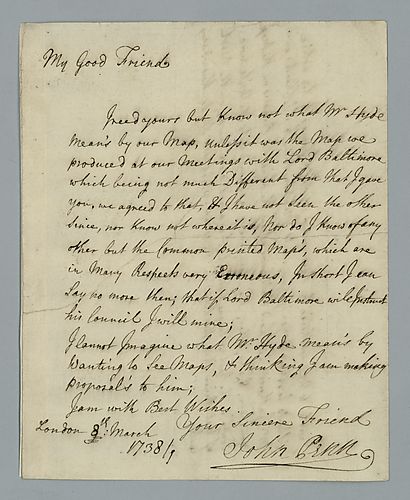 My Good Friend
I recd yours but Know not what Mr Hyde
mean's by our Map, unless it was the Map we
produced at our Meetings with Lord Baltimore
which being not much Different from that I gave
you, we agreed to that, & I have not seen the other
since, nor know not where it is, Nor do I know of any
other but the Common printed Map's, which are
in Many Respects very Erroneous, In short I can
Say no more then; that if Lord Baltimore will Instruct
his Council I will mine;
I Cannot Imagine what Mr Hyde mean's by
Wanting to See Maps, & thinking I am making
proposals to him;
I am with Best Wishes
Your Sincere Friend
London 8th: March
1738/9
John Penn